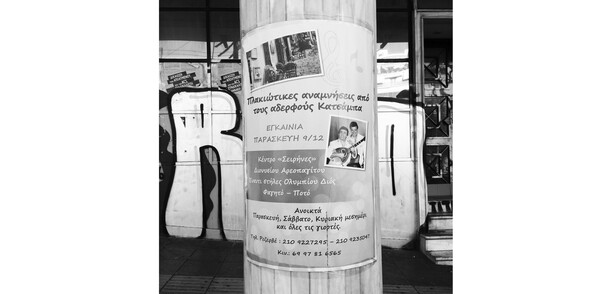 Πλακιώτικες αναμνήσεις από
τους αδερφούς Κατσάμπα
ΕΓΚΑΙΝΙΑ
ΠΑΡΑΣΚΕΥΗ 9/12
Κέντρο «Σειρήνες»
Διονυσίου Αρεοπαγίτου
στήλες Ολυμπίου Διός
Φαγητό – Ποτό
Ανοικτά
Παρασκευή, Σάββατο, Κυριακή μεσημέρι
και όλες τις γιορτές.
Τηλ. Ρεζερβέ : 210 9227295 – 210 9235047
Κιν.: 69 97 81 6565